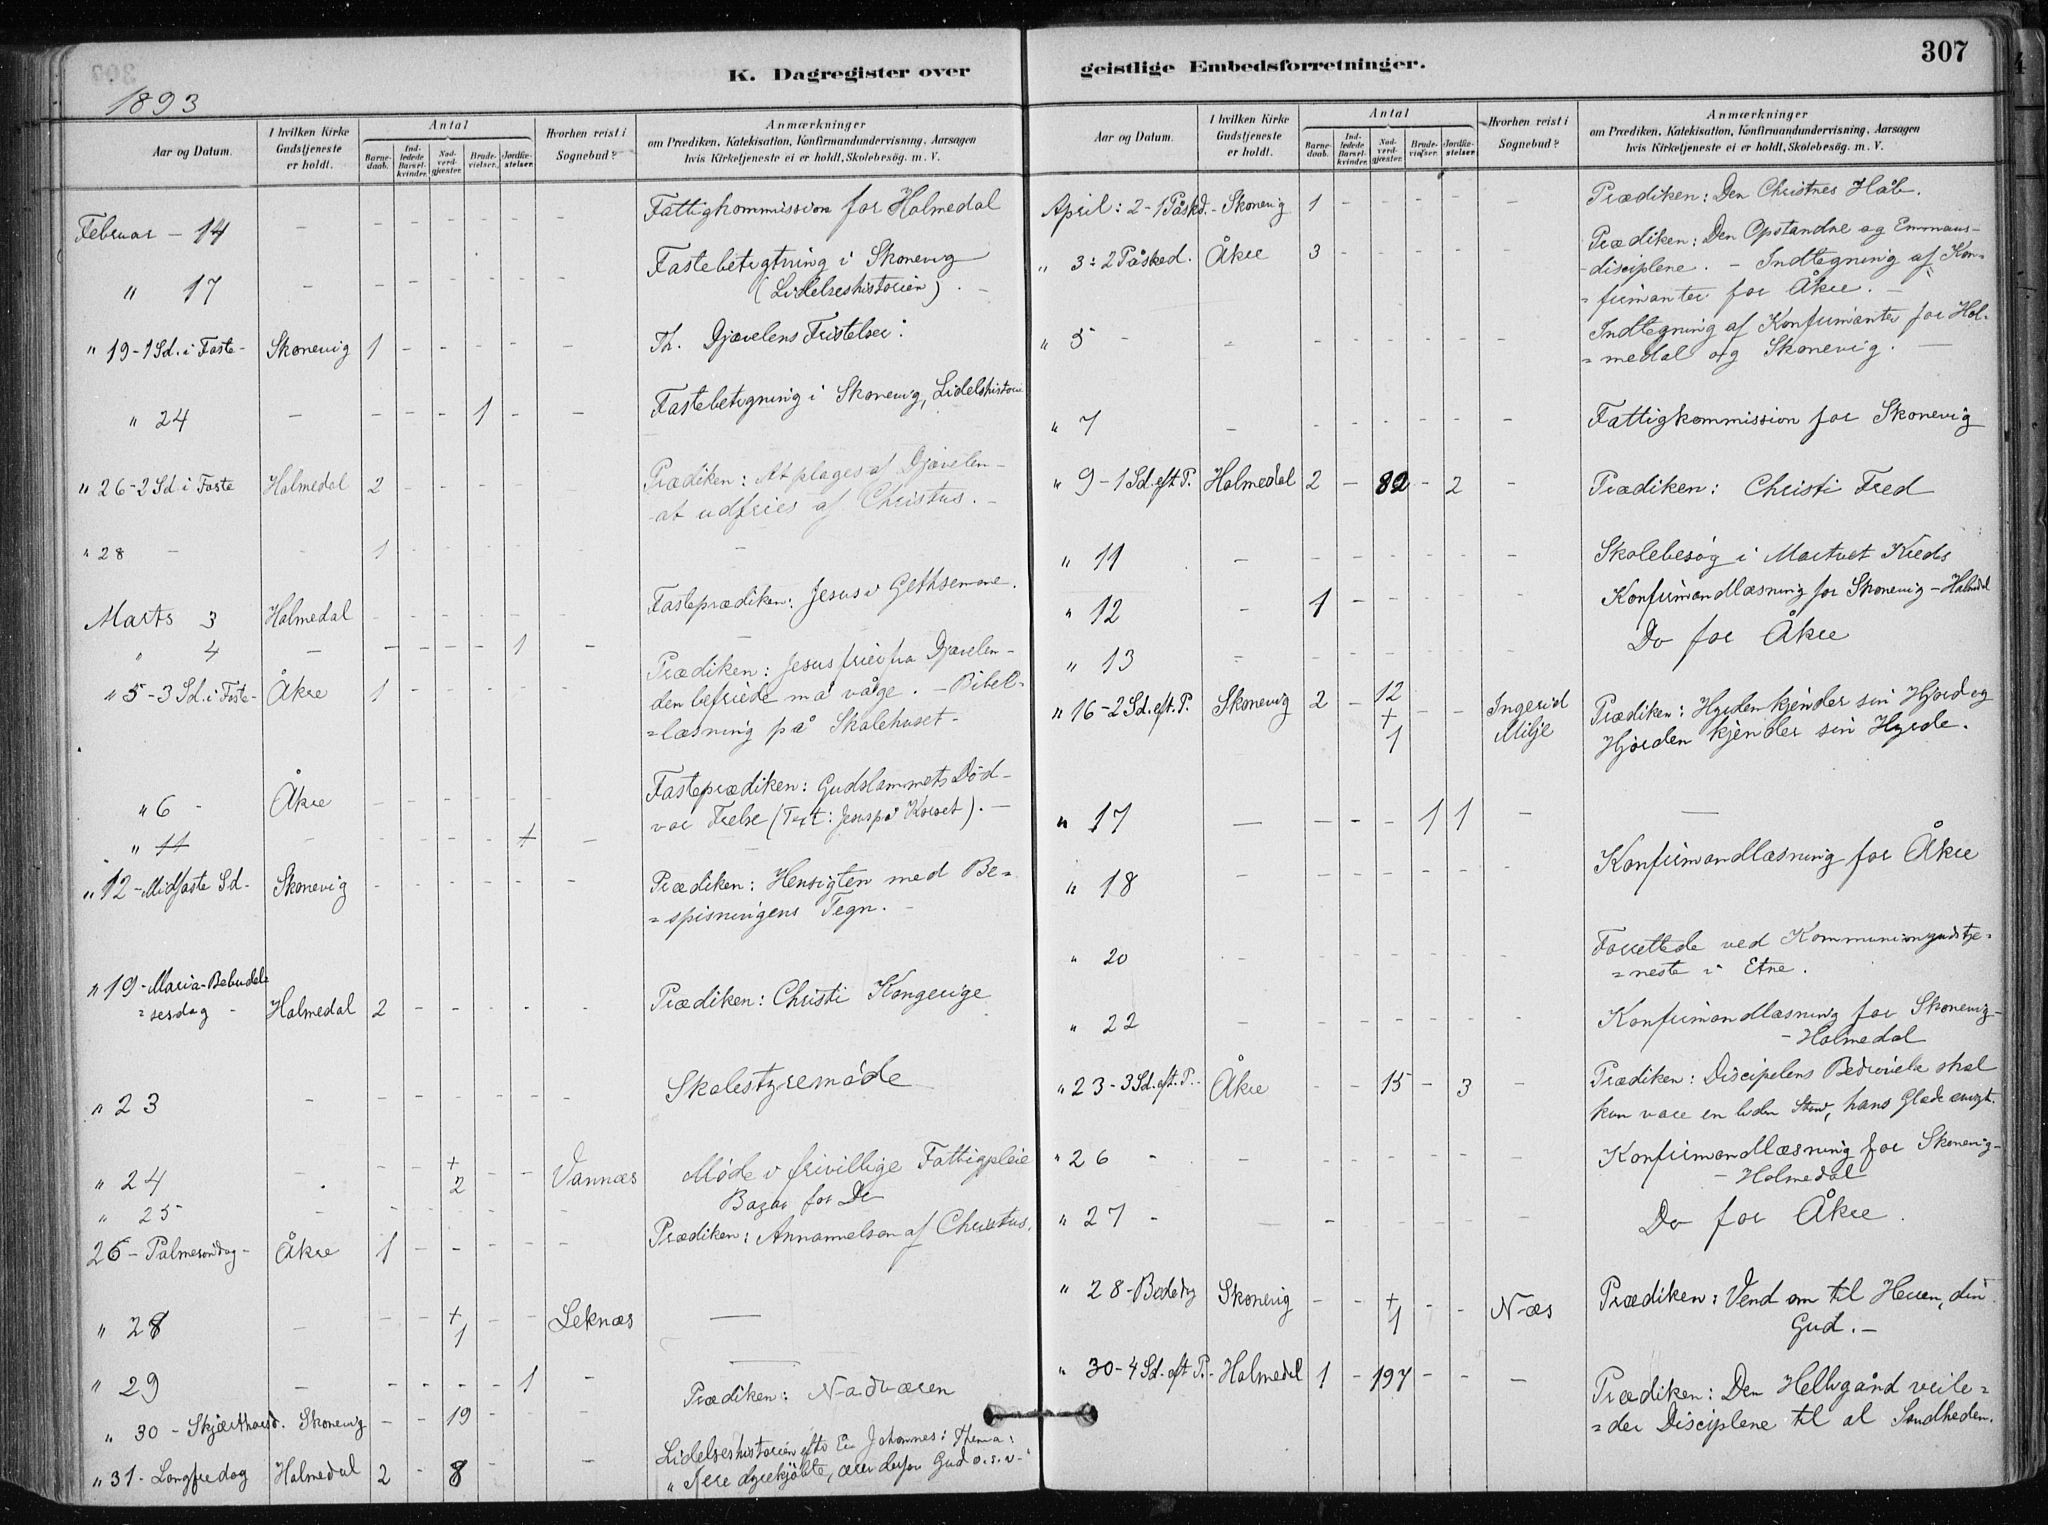 307
K. Dagregister over geistlige Embedsforretninger.
1893
Aar og Datum.
I hvilken Kirke Gudstjeneste er holdt.
Antal
Barne-daab.
Ind-ledede Barsel-kvinder.
Nad-verd-gjæster.
Brude-vielser.
Jordfæ-stelser.
Hvorhen reist i Sognebud?
Anmærkninger
om Prædiken, Katekisation, Konfirmandundervisning, Aarsagen
hvis Kirketjeneste ei er holdt, Skolebesög. m. V.
Februar - 14 - - - - - - - Fattigkommission for Holmedal
" 17 - - - - - - - Fastebetigtning i Skonevig
(Lidelseshistorien). -
" 19 - 1 Sd. i Faste - Skonevig 1 - - - - - Th. Djævelens Fristelser.
" 24 - - - - 1 - - Fastebetigning i Skonevig, Lidelshistorie
" 26 - 2 Sd. i Faste Holmedal 2 - - - - - Prædiken: At plages af Djævelen -
at udfries af Christus. -
" 28 - 1 - - - - -
Marts 3 Holmedal - - - - - - Fasteprædiken: Jesus i Gethsemane.
" 4 - - - - - 1 -
" 5 - 3 Sd. i Faste - Åkre 1 - - - - - Prædiken: Jesus frier fra Djævelen -
den befriede må våge. - Bibel-
=læsning på Skolehuset -
" 6 - Åkre - - - - - - Fasteprædiken: Gudslammets Död -
vor Frelse (Text: Jesus på Korset). -
" 11 - - - - - 1 -
" 12 - Midfaste Sd - Skonevig - - - - - - Prædiken: Hensigten med Be-
=spisningens Tegn. -
" 19 - Maria-Bebudel=
=sesdag - Holmedal 2 - - - - - Prædiken: Christi Kongerige
" 23 - - - - - - - Skolestyremöde
" 24 - - - + 2 - - Vannæs Möde v frivillige Fattigpleie
" 25 - - - - - - - Bazar for Do
26 - Palmesöndag - Åkre 1 - - - - - Prædiken: Annammelsen af Christus.
" 28 - - - + 1 - - Leknæs
" 29 - - - - - 1 -
" 30 - Skjærthorsd. Skonevig - - 19 - - - Prædiken: Nadværen
" 31 - Langfredag Holmedal 2 - 8 - - - Lidelseshistorien efter Ev Johannes: Thema:
" I ere dyrekjöbte, ærer derfor Gud o.s.v.-"
Aar og Datum.
I hvilken Kirke Gudstjeneste er holdt.
Antal
Barne-daab.
Ind-ledede Barsel-kvinder.
Nad-verd-gjæster.
Brude-vielser.
Jordfæ-stelser.
Hvorhen reist i Sognebud?
Anmærkninger
om Prædiken, Katekisation, Konfirmandundervisning, Aarsagen
hvis Kirketjeneste ei er holdt, Skolebesög. m. V.
April: 2 - 1 Påskd. - Skonevig 1 - - - - - Prædiken: Den Christnes Håb.
" 3 = 2 Påsked. Åkre 3 - - - - - Prædiken: Den Opstandne og Emmaus-
-disciplene. - Indtegning af Kon-
=firmanter for Åkre. -
" 5 - - - - - - - Indtegning af Konfirmanter for Hol-
=medal og Skonevig. -
" 7 - - - - - - - Fattigkommission for Skonevig
" 9 - 1 Sd. eft P. Holmedal 2 - 82 - 2 - Prædiken: Christi Fred
" 11 - - - - - - - Skolebesøg i Kreds
" 12 - 1 - - - - - Konfirmandlæsning for Skonevig - Holmedal
" 13 - - - - - - - Do for Åkre
" 16 - 2 Sd. eft. P. Skonevig 2 - 12 + 1 - - Ingerid Milje Prædiken: Hyrden kjender sin Hjord og
Hjorden kjender sin Hyrde.
" 17 - - - - 1 1 -
" 18 - - - - - - - Konfirmandlæsning for Åkre
" 20 - - - - - - - Forrettede ved Kommuniongudstje=
=neste i Etne.
" 22 - - - - - - - Konfirmandlæsning for Skonevig -
- Holmedal
" 23 - 3 Sd. eft. P. - Åkre - - 15 - 3 - Prædiken: Discipelens Bedrövelse skal
kun vare en liden Stund, hans Glæde evigt.
" 26 - - - - - - - Konfirmandlæsning for Skonevig -
- Holmedal
" 27 - - - - - - - Do for Åkre.
" 28 - Bededag Skonevig - - + 1 - - Næs Prædiken: Vend om til Herren, din
Gud. -
" 30 - 4 Sd. eft P. - Holmedal 1 - 197 - - - Prædiken: Den Helligånd veile=
=der Disciplene til al Sandheden.